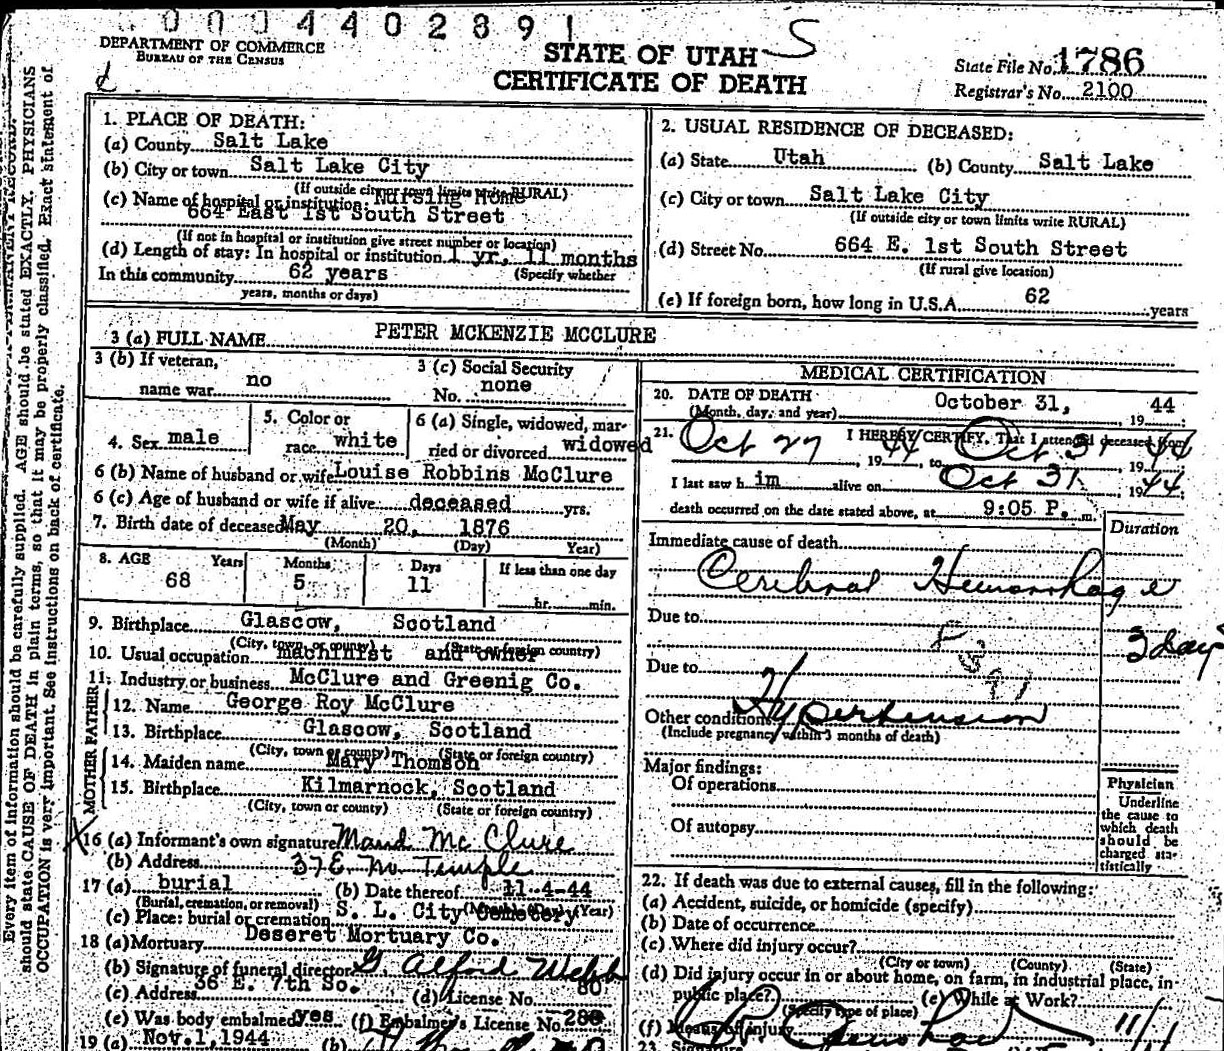 0004402891
DEPARTMENT OF COMMERCE
BUREAU OF THE CENSUS
STATE OF UTAH S
CERTIFICATE OF DEATH
State File No. 1786
Registrar's No. 2100
Every item of information should be carefully supplied. AGE should be stated EXACTLY. PHYSICIANS
should state CAUSE OF DEATH in plain terms, so that it may be properly classified. Exact statement of
OCCUPATION is very important. See instructions on back of certificate.
1. PLACE OF DEATH:
(a) County Salt Lake
(b) City or town Salt Lake City
(If outside city or town limits write RURAL)
(c) Name of hospital or institution: Nursing Home
664 East 1st South Street
(If not in hospital or institution give street number or location)
(d) Length of stay: In hospital or institution 1 yr, 11 months
In this community 62 years (Specify whether
years, months or days)
2. USUAL RESIDENCE OF DECEASED:
(a) State Utah (b) County Salt Lake
(c) City or town Salt Lake City
(If outside city or town limits write RURAL)
(d) Street No. 664 E. 1st South Street
(If rural give location)
(e) If foreign born, how long in U.S.A. 62 years
3 (a) FULL NAME PETER MCKENZIE MCCLURE
3 (b) If veteran,
name war no
3 (c) Social Security
No. none
4. Sex male
5. Color or
race white
6 (a) Single, widowed, mar-
ried or divorced widowed
6 (b) Name of husband or wife Louise Robbins McClure
6 (c) Age of husband or wife if alive deceased yrs.
7. Birth date of deceased May 20, 1876
(Month) (Day) Year)
8. AGE Years Months Days If less than one day
68 5 11 hr. min.
9. Birthplace Glascow, Scotland
(City, town or county) (State or foreign country)
10. Usual occupation machinist and owner
11. Industry or business McClure and Greenig Co.
FATHER
12. Name George Roy McClure
13. Birthplace Glascow, Scotland
(City, town or county) (State or foreign country)
MOTHER
14. Maiden name Mary Thomson
15. Birthplace Kilmarnock, Scotland
(City, town or county) (State or foreign country)
X 16 (a) Informant's own signature Maud McClure
(b) Address 37 E. No. Temple
17 (a) burial (b) Date thereof 11-4-44
(Burial, cremation, or removal) (Year)
(c) Place: burial or cremation S. L. City Cemetery
18 (a) Mortuary Deseret Mortuary Co.
(b) Signature of funeral director G. Alford Webb
(c) Address 36 E. 7th So. (d) License No. 80
(e) Was body embalmed yes (f) Embalmer's License No.
19 (a) Nov. 1, 1944 (b)
MEDICAL CERTIFICATION
20. DATE OF DEATH
(Month, day, and year) October 31, 19 44
21. I HEREBY CERTIFY, That I attended deceased from
Oct 27, 19 44, to Oct 31 19 44
I last saw h im alive on Oct 31, 19 44;
death occurred on the date stated above, at 9:05 P. m.
Duration
Immediate cause of death
Cerebral Hemorrhage
3 days
Due to
Due to
Other conditions Hypertension
(Include pregnancy within 3 months of death)
Major findings:
Of operations
Of autopsy
Physician
Underline
the cause to
which death
should be
charged sta-
tistically
22. If death was due to external causes, fill in the following:
(a) Accident, suicide, or homicide (specify)
(b) Date of occurrence
(c) Where did injury occur?
(City or town) (County) (State)
(d) Did injury occur in or about home, on farm, in industrial place, in
public place? (e) While at Work?
(Specify type of place)
(f) Means of injury
23. Signature